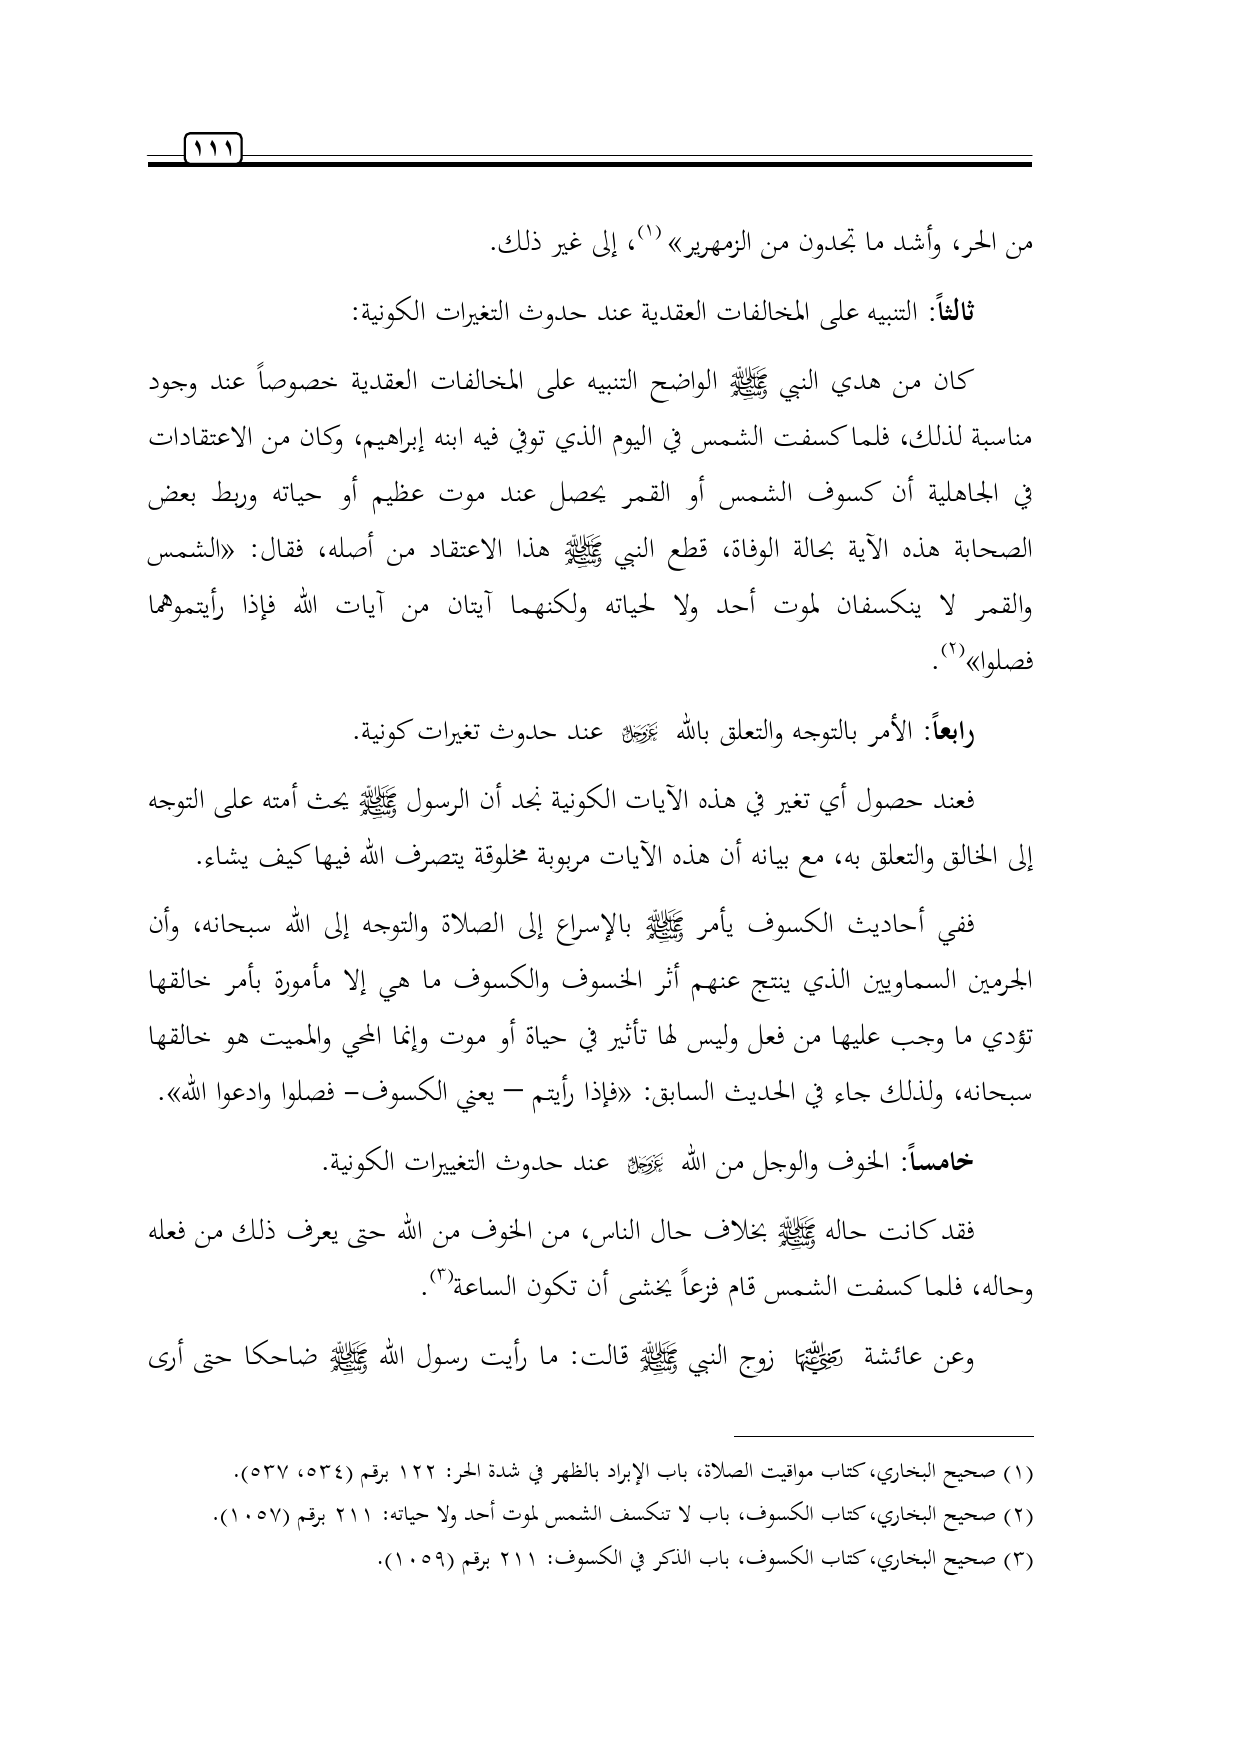 ١١١
من الحر، وأشد ما تجدون من الزمهرير» (١)، إلى غير ذلك.
ثالثاً: التنبيه على المخالفات العقدية عند حدوث التغيرات الكونية:
كان من هدي النبي ﷺ الواضح التنبيه على المخالفات العقدية خصوصاً عند وجود
مناسبة لذلك، فلما كسفت الشمس في اليوم الذي توفي فيه ابنه إبراهيم، وكان من الاعتقادات
في الجاهلية أن كسوف الشمس أو القمر يحصل عند موت عظيم أو حياته وربط بعض
الصحابة هذه الآية بحالة الوفاة، قطع النبي ﷺ هذا الاعتقاد من أصله، فقال: «الشمس
والقمر لا ينكسفان لموت أحد ولا لحياته ولكنهما آيتان من آيات الله فإذا رأيتموهما
فصلوا»(٢).
رابعاً: الأمر بالتوجه والتعلق بالله عز وجل عند حدوث تغيرات كونية.
فعند حصول أي تغير في هذه الآيات الكونية نجد أن الرسول ﷺ يحث أمته على التوجه
إلى الخالق والتعلق به، مع بيانه أن هذه الآيات مربوبة مخلوقة يتصرف الله فيها كيف يشاء.
ففي أحاديث الكسوف يأمر ﷺ بالإسراع إلى الصلاة والتوجه إلى الله سبحانه، وأن
الجرمين السماويين الذي ينتج عنهم أثر الخسوف والكسوف ما هي إلا مأمورة بأمر خالقها
تؤدي ما وجب عليها من فعل وليس لها تأثير في حياة أو موت وإنما المحي والمميت هو خالقها
سبحانه، ولذلك جاء في الحديث السابق: «فإذا رأيتم – يعني الكسوف– فصلوا وادعوا الله».
خامساً: الخوف والوجل من الله عز وجل عند حدوث التغييرات الكونية.
فقد كانت حاله ﷺ بخلاف حال الناس، من الخوف من الله حتى يعرف ذلك من فعله
وحاله، فلما كسفت الشمس قام فزعاً يخشى أن تكون الساعة(٣).
وعن عائشة رضي الله عنها زوج النبي ﷺ قالت: ما رأيت رسول الله ﷺ ضاحكا حتى أرى
(١) صحيح البخاري، كتاب مواقيت الصلاة، باب الإبراد بالظهر في شدة الحر: ١٢٢ برقم (٥٣٤، ٥٣٧).
(٢) صحيح البخاري، كتاب الكسوف، باب لا تنكسف الشمس لموت أحد ولا حياته: ٢١١ برقم (١٠٥٧).
(٣) صحيح البخاري، كتاب الكسوف، باب الذكر في الكسوف: ٢١١ برقم (١٠٥٩).